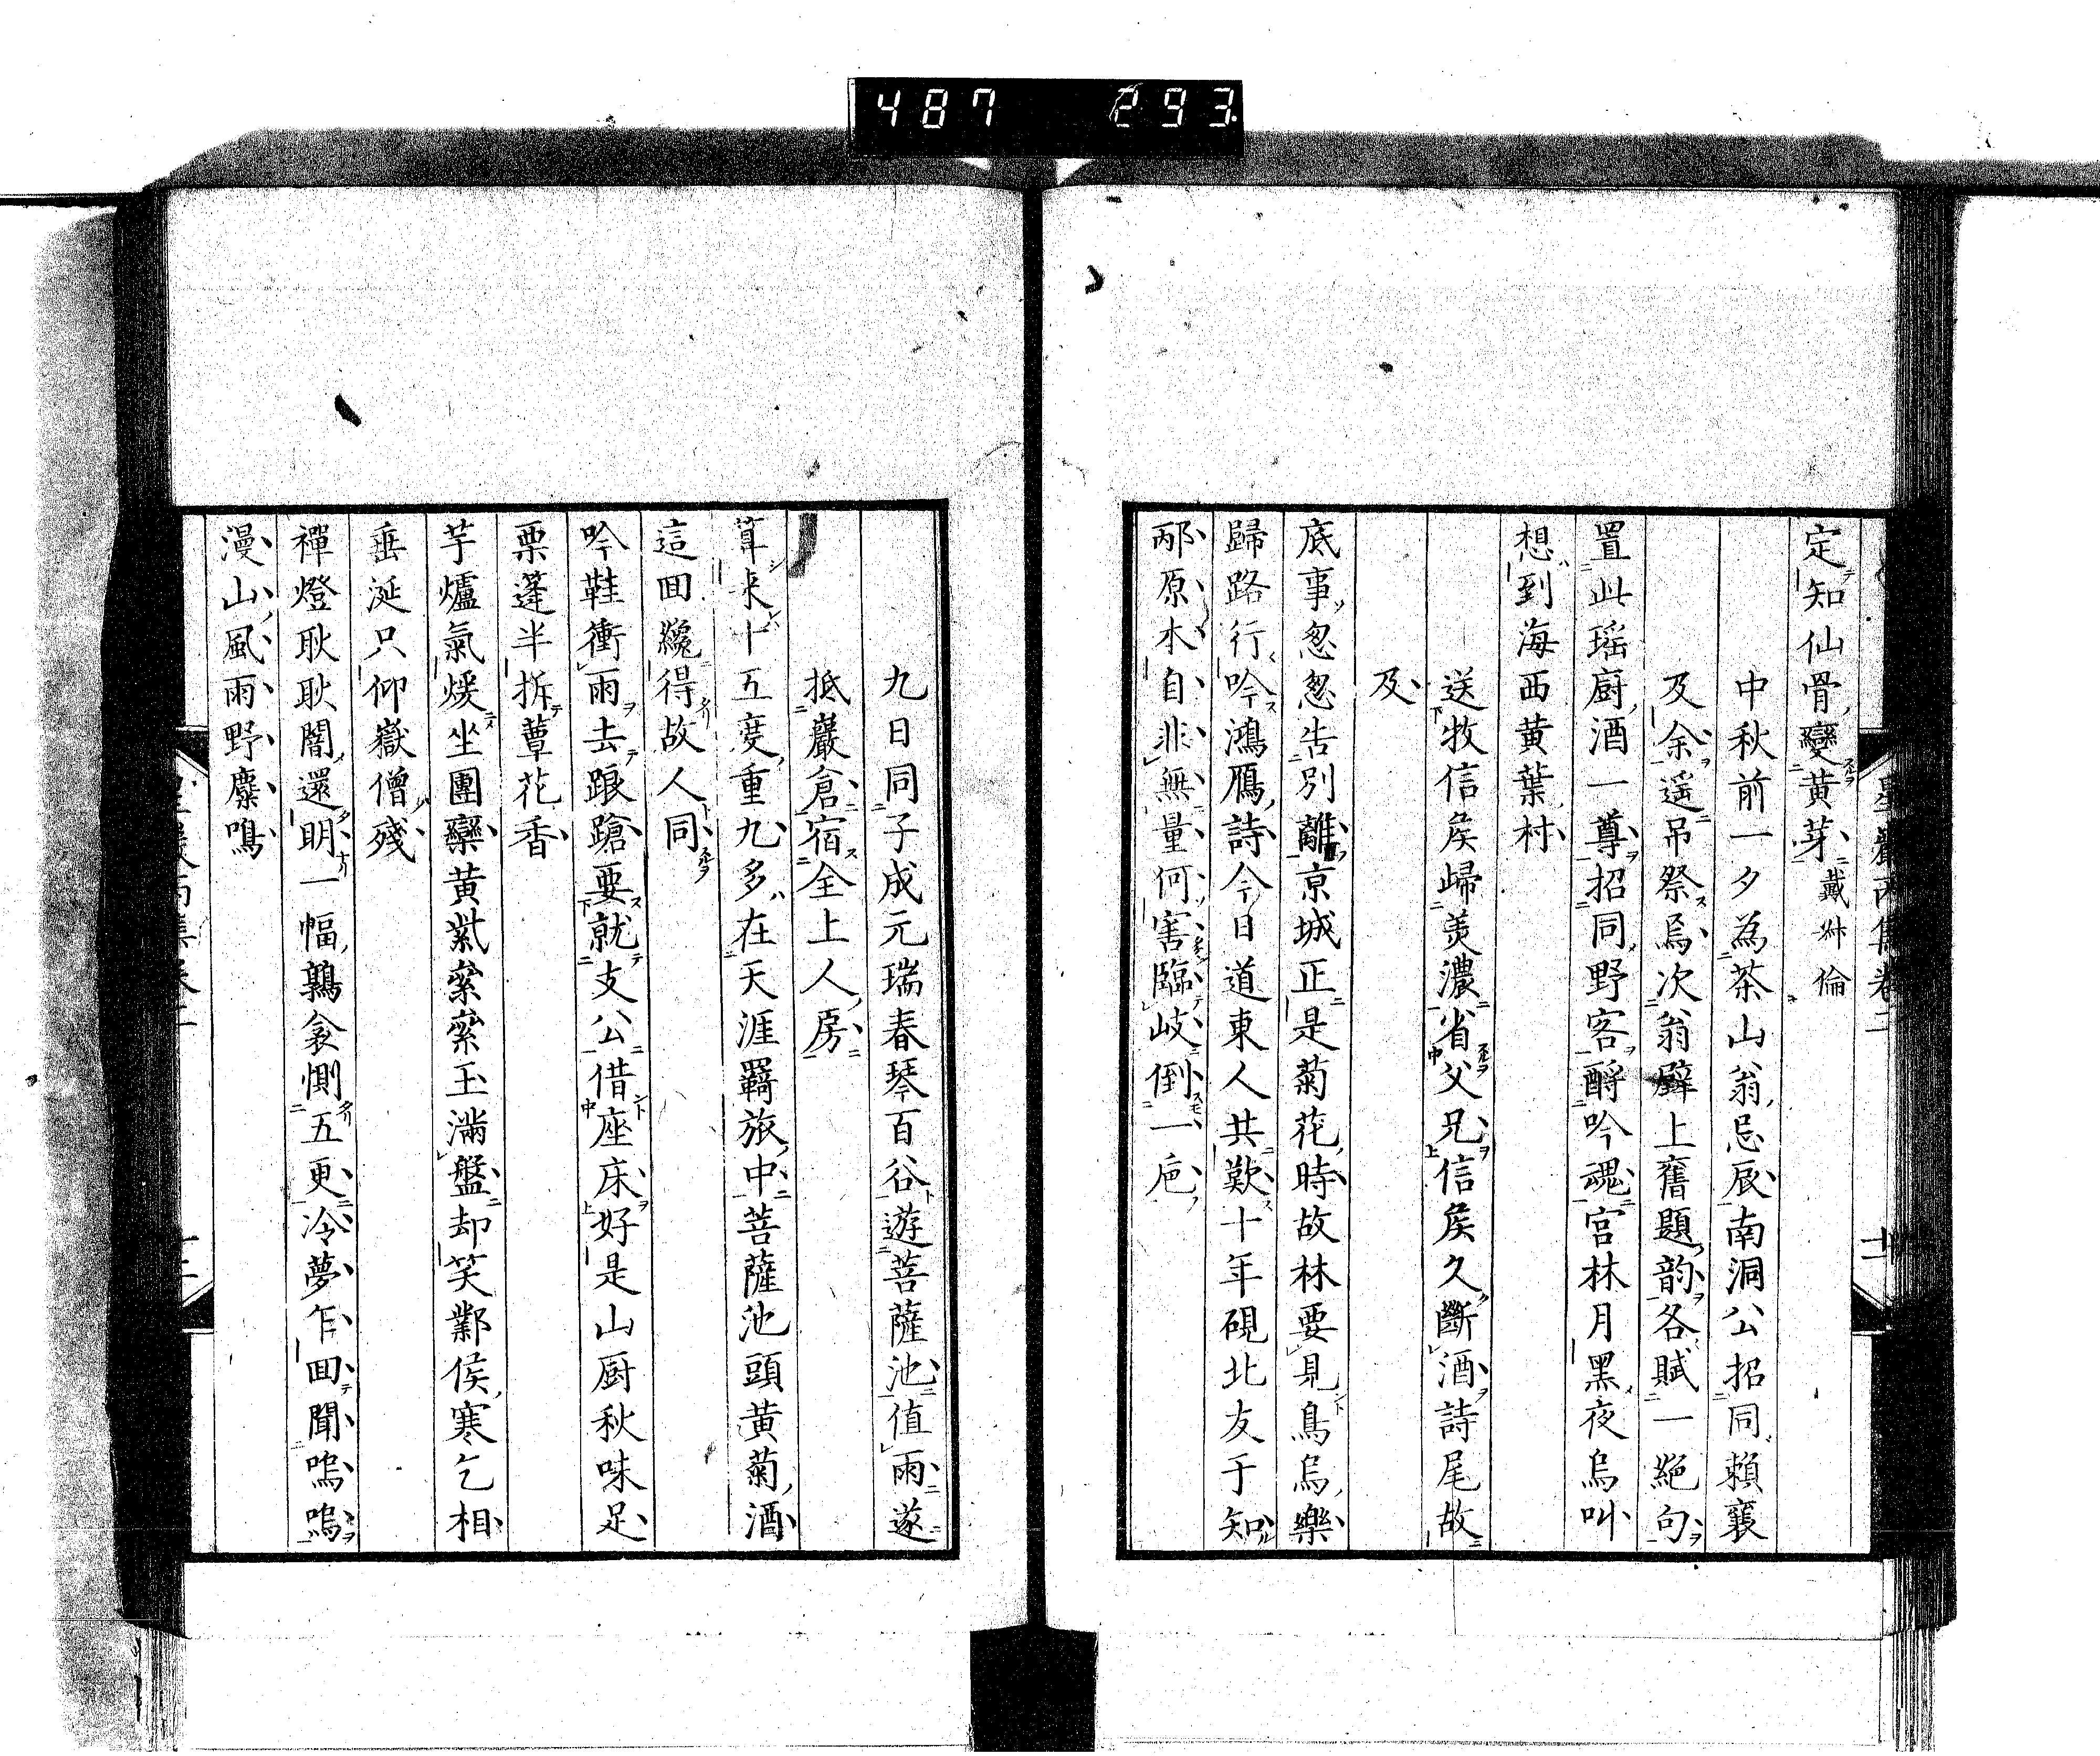 487 293
定知仙骨變黃芽戴叔倫
中秋前一夕為茶山翁忌辰南洞公招同賴襄
及余遥吊祭焉次翁壁上舊題韵各賦一絕句
置此瑤厨酒一尊招同野客酹吟魂宮林月黑夜烏叫
想到海西黃葉村
送牧信矦歸美濃省父兄信矦久斷酒詩尾故
及
底事忽忽告別離京城正是菊花時故林要見鳥烏樂
歸路行吟鴻雁詩今日道東人共歎十年硯北友于知
邴原本自非無量何害臨岐倒一巵
九日同子成元瑞春琴百谷遊菩薩池值雨遂
抵巖倉宿全上人房
算来十五度重九多在天涯羇旅中菩薩池頭黃菊酒
這回纔得故人同
吟鞋衝雨去踉蹌要就支公借座床好是山厨秋味足
栗蓬半拆蕈花香
芋爐氣煖坐團欒黃紫縈縈玉滿盤却笑鄴侯寒乞相
垂涎只仰嶽僧殘
禪燈耿耿闇還明一幅鶉衾惻五更冷夢乍回聞嗚嗚
漫山風雨野麋鳴